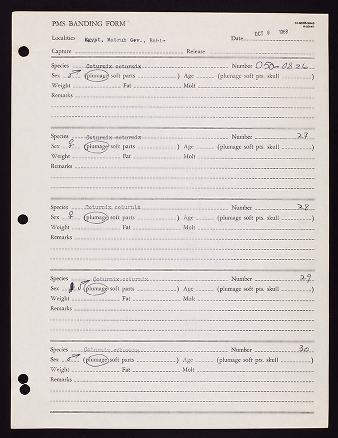 PMS BANDING FORM
Localities Egypt, Matruh Gov., Date OCT 9 1968
Capture Release
Species Coturnix coturnix Number 050-0826
Sex ♂ (plumage soft parts ) Age (plumage soft pts. skull )
Weight Fat Molt
Remarks
Species Coturnix coturnix Number 27
Sex ♀ (plumage soft parts ) Age (plumage soft pts. skull )
Weight Fat Molt
Remarks
Species Coturnix coturnix Number 28
Sex ♀ (plumage soft parts ) Age (plumage soft pts. skull )
Weight Fat Molt
Remarks
Species Coturnix coturnix Number 29
Sex ♂ (plumage soft parts ) Age (plumage soft pts. skull )
Weight Fat Molt
Remarks
Species Coturnix coturnix Number 30
Sex ♂ (plumage soft parts ) Age (plumage soft pts. skull )
Weight Fat Molt
Remarks